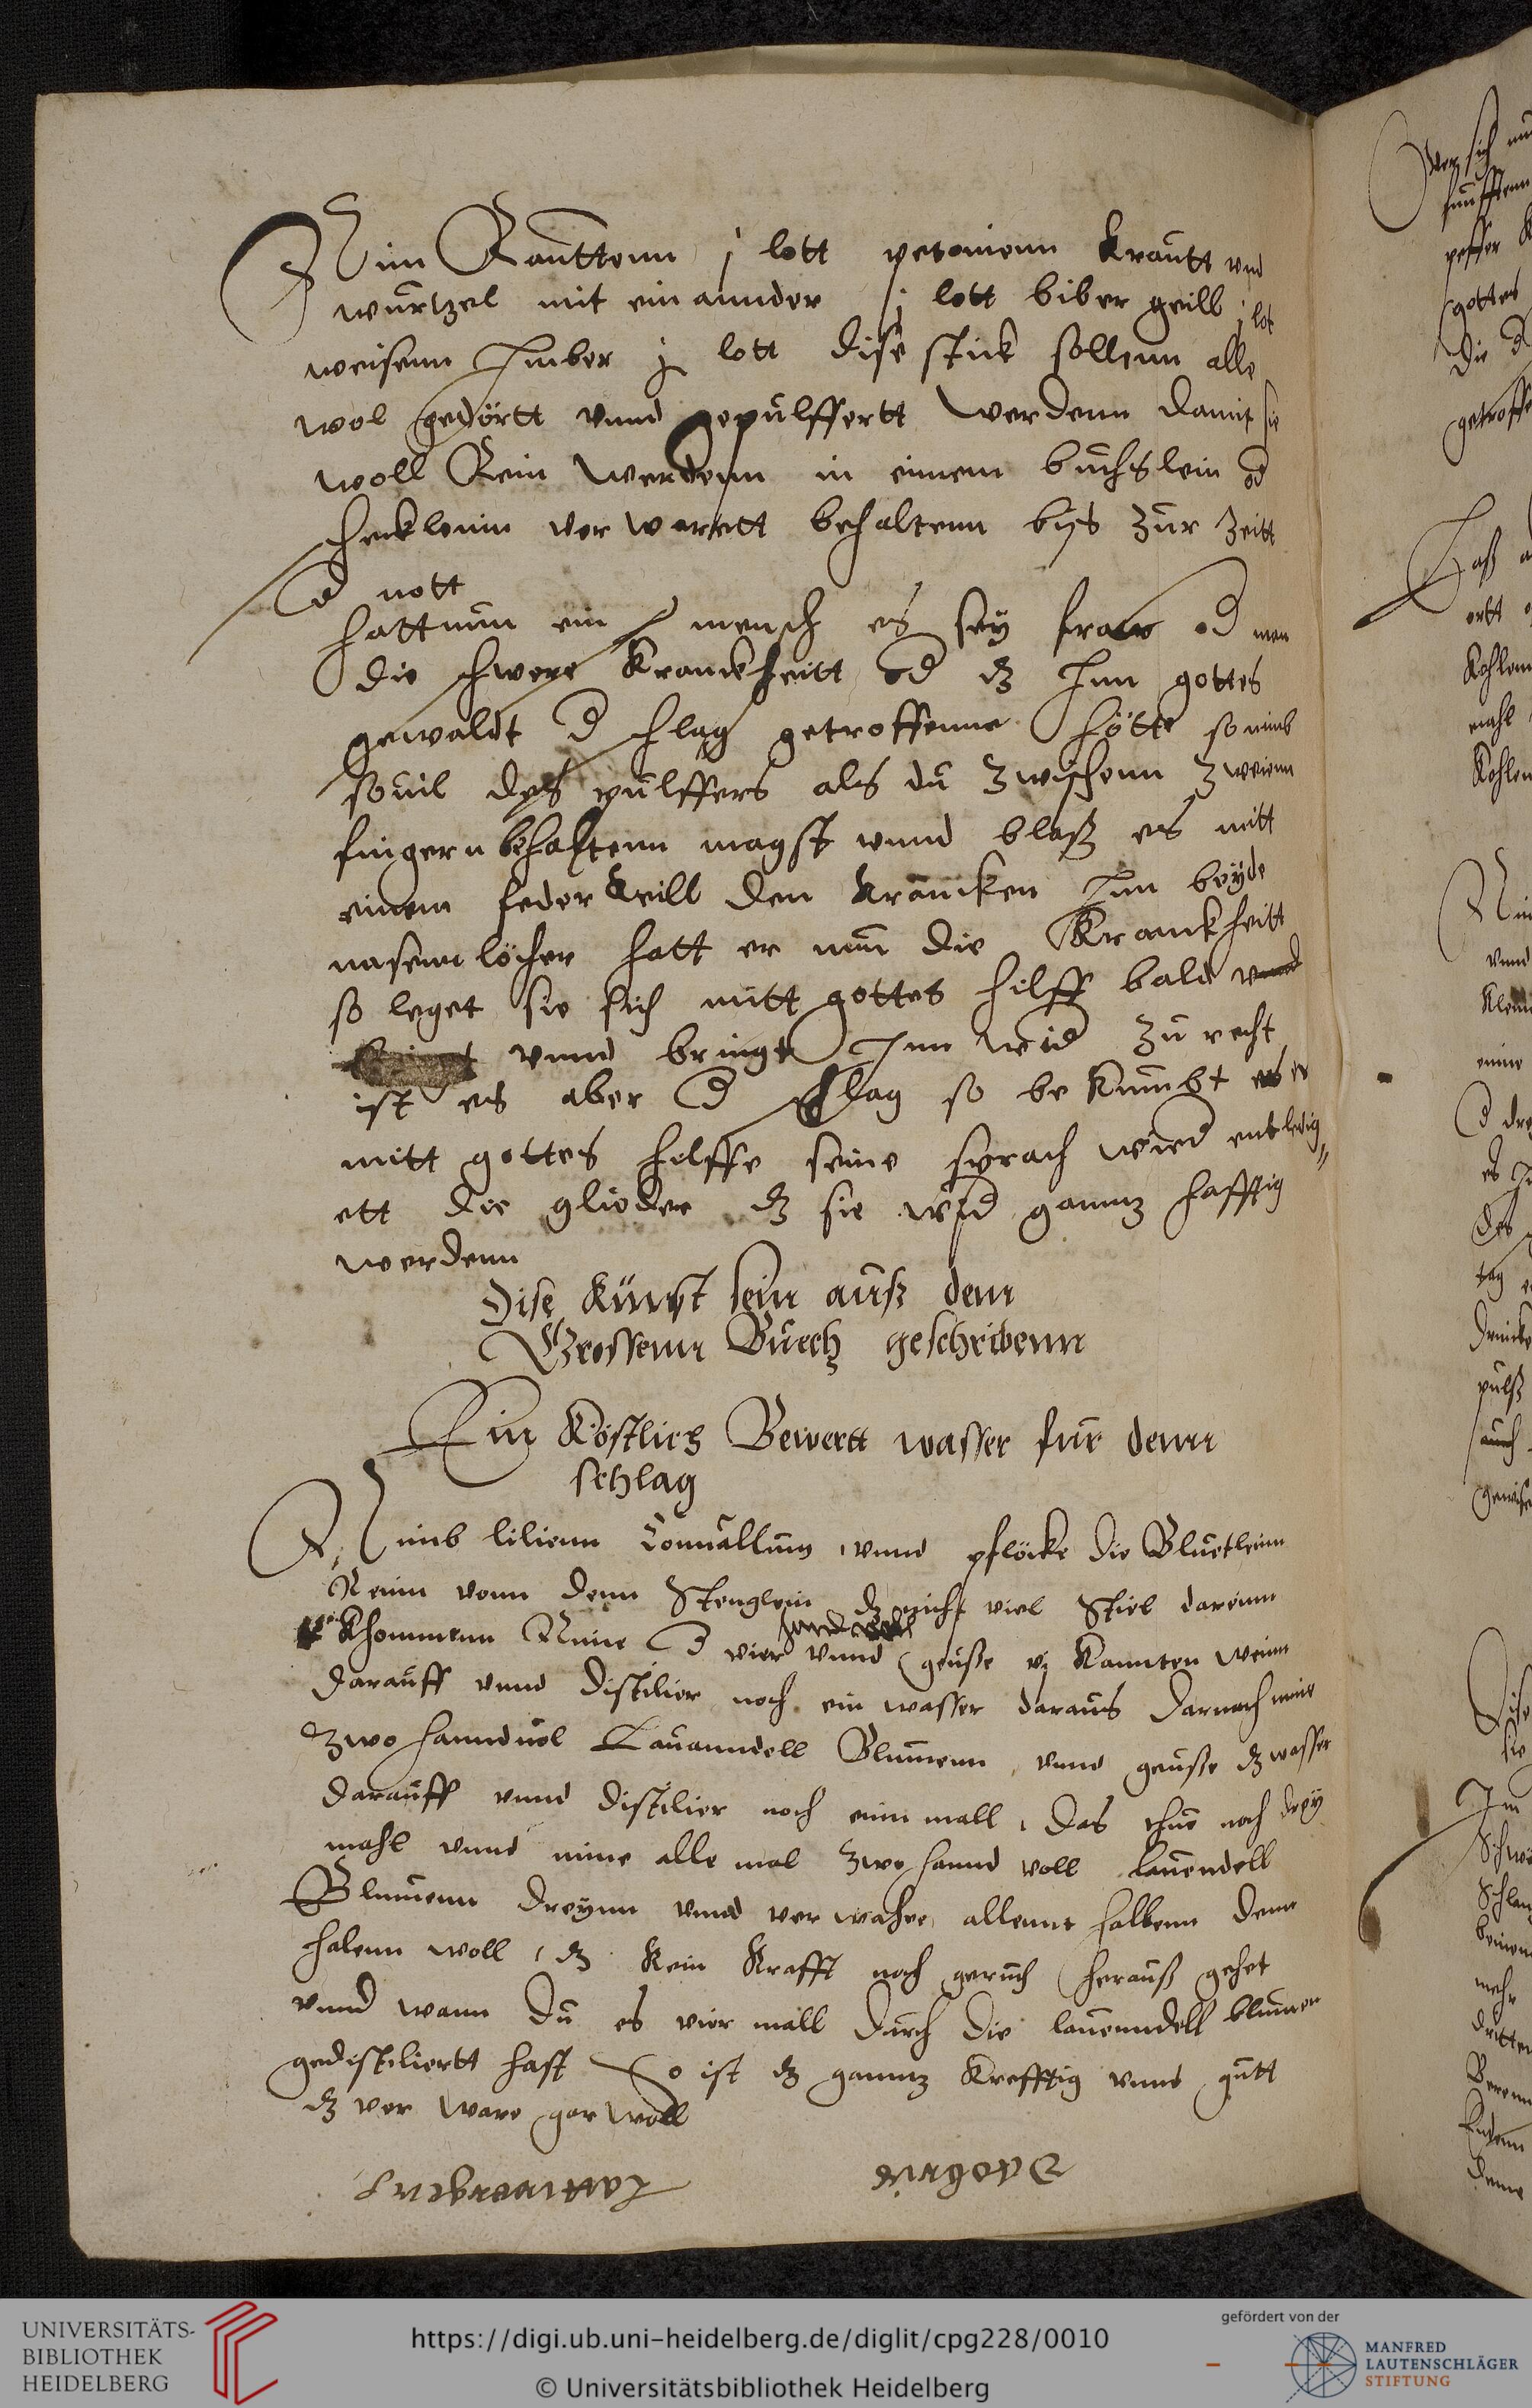 Nim Rauttenn j lott petonienn krautt vnd
wurtzel mit ein annder j lott biber geill j lot
weisenn Imber j lott dise stick sollenn alle
wol gedörtt vnnd gepulffertt werdenn damit sie
woll Rein werdenn in einem buchslein od
secklenin ver warett behaltenn biss zur Zeitt
d nott
hatt nun ein mensch es sey fraw od man
die schwere kranckheitt od dz Inn gottes
gewaldt d schlag getroffenne hötte so nimb
souil des pulffers als du zwischenn zweienn
fingern behaltenn magst vnnd blaß es mitt
einem feder keill den krancken Inn beyde
nasenn löcher hatt er nun die kranckheitt
so leget sie sich mitt gottes hilff bald
vnnd bringt Inn wid zu recht
ist es aber d schlag so be kumbt er
mitt gottes hilffe seine sprach wied entledig
ett die glieder dz sie wid gannz hafftig
werdenn
Dise künst sein auß dem
Grossenn Buech geschribenn
Ein köstlich Bewertt wasser fur denn
schlag
Nimb lilienn Conuallium vnnd pflöcke die Bluetleinn
Reinn vonn denn Stenglein dz nicht viel Stiel dareinn
khommenn Nime d vier hand voll vnnd geusse vj kannten weinn
darauff vnnd distilier noch ein wasser daraus darnach nime
zwo hannduol Lauanndell Blumenn vnnd geusse dz wasser
darauff vnnd distilier noch einmall, das thue noch drey
mahl vnnd nime alle mal zwo hannd voll lauendell
Blumenn dreynn vnnd ver wahre allennt halbenn denn
halenn woll, dz kein krafft noch geruch herauß gehet
vnnd wann du es vier mall durch die lauenndell blumen
gedistiliertt hast So ist dz gannz krefftig vnnd gutt
dz ver ware gar woll
gottes
die d
getroffe
khlen
mahl
kohlen
vnnd
tag
auch
Im
mehr
https://digi.ub.uni-heidelberg.de/diglit/cpg228/0010
© Universitätsbibliothek Heidelberg
UNIVERSITÄTS-
BIBLIOTHEK
HEIDELBERG
gefördert von der
MANFRED
LAUTENSCHLÄGER
STIFTUNG